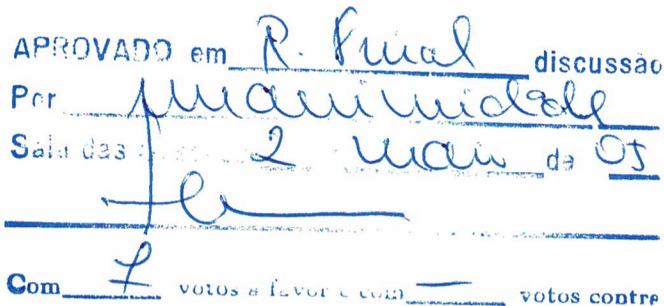 APROVADO em R. Final discussão
Por unanimidade
Sala das 2 maio de 05
Com 7 votos a favor e com — votos contra